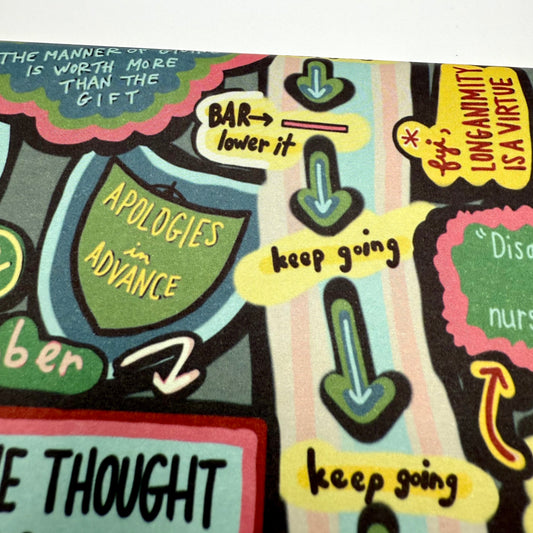 THE MANNER OF GIVING
IS WORTH MORE
THAN THE
GIFT
BAR→
lower it
* fyi,
LONGANIMITY
IS A VIRTUE
APOLOGIES
in
ADVANCE
keep going
"Diso
nurs
ber
E THOUGHT
keep going